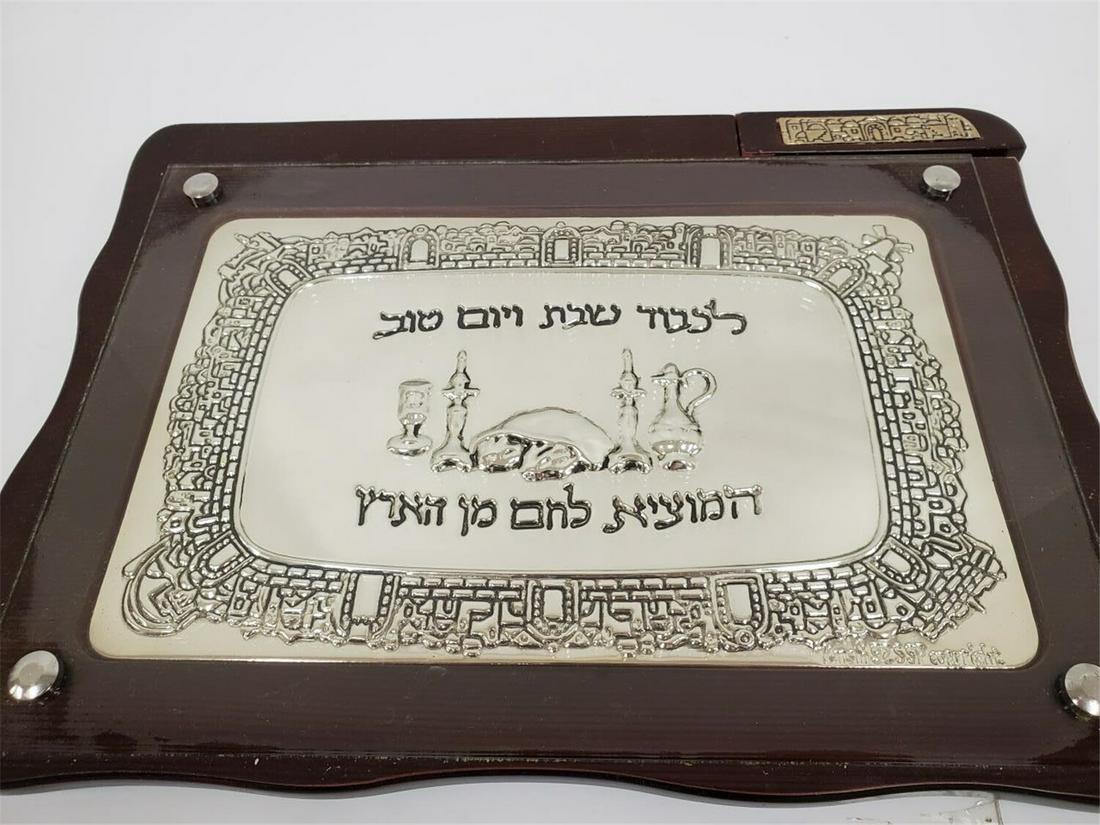 לכבוד שבת ויום טוב
המוציא לחם מן הארץ
copyright